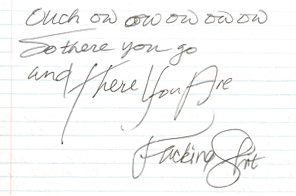 Ouch ow ow ow ow ow
So there you go
and there You Are
Facking Shit